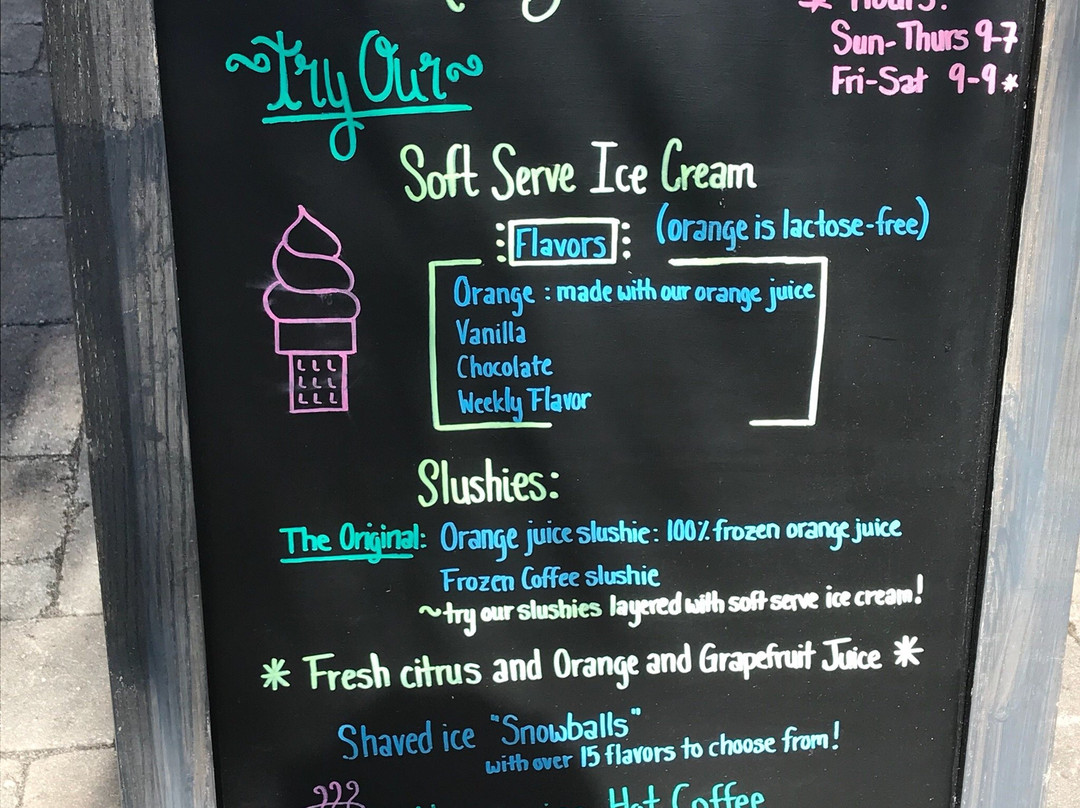 * Hours:
Sun-Thurs 9-7
Fri-Sat 9-9*
~Try Our~
Soft Serve Ice Cream
Flavors
(orange is lactose-free)
Orange : made with our orange juice
Vanilla
Chocolate
Weekly Flavor
Slushies:
The Original: Orange juice slushie: 100% frozen orange juice
Frozen Coffee slushie
~try our slushies layered with soft serve ice cream!
* Fresh citrus and Orange and Grapefruit Juice *
Shaved ice "Snowballs"
with over 15 flavors to choose from!
Hot Coffee